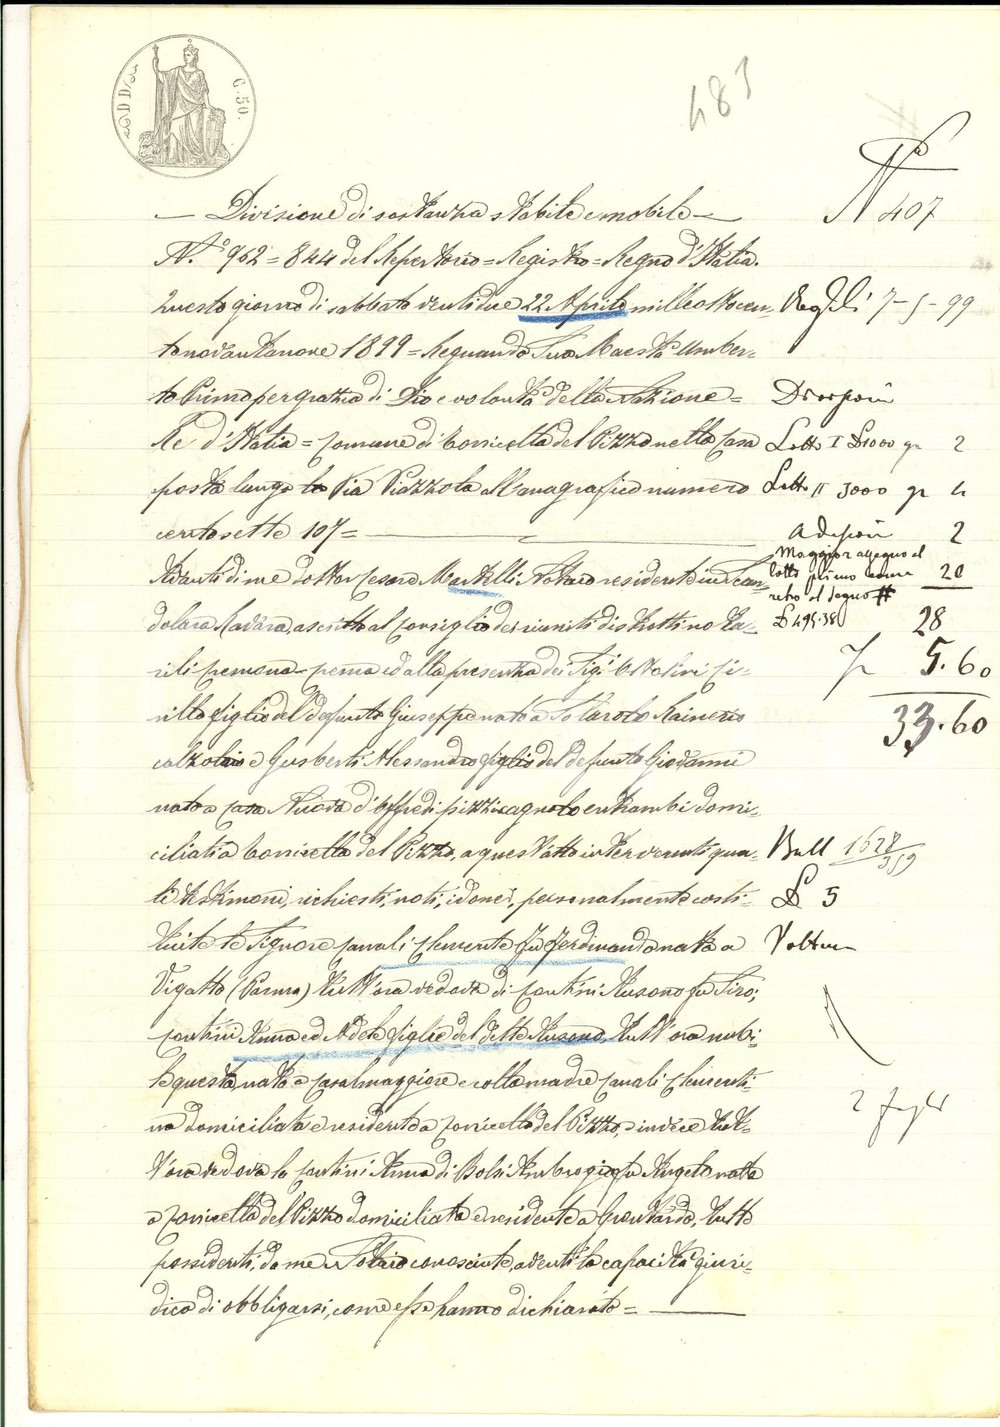 C. 50.
483
Nº 407
— Divisione di sostanza stabile e mobile —
N.º 962 = 844 del Repertorio = Registro = Regno d'Italia.
Questo giorno di sabbato ventidue 22 Aprile milleottocen-
tonovantanove 1899 = Regnando Sua Maestà Umber-
to Primo per grazia di Dio e volontà della Nazione =
Re d'Italia = Comune di Torricella del Pizzo nella Casa
posta lungo la Via Piazzola all'anagrafico numero
centosette 107 =
Avanti di me dottor Cesare Martelli Notaro residente in Scan-
dolara Ravara, ascritto al Consiglio dei riuniti distretti no ta-
rili Cremona-Crema ed alla presenza dei Sigi. Ottolini Ci-
rillo figlio del defunto Giuseppe nato a Solarolo Rainerio
calzolaio e Gusberti Alessandro figlio del defunto Giovanni
nato a Casa Nuova d'Offredi pizzicagnolo entrambi domi-
ciliati a Torricella del Pizzo, a quest'atto intervenuti qua-
li testimoni, richiesti, noti, idonei, personalmente costi-
tuite le Signore Canali Clemente fu Ferdinando nata a
Vigatto (Parma) tutt'ora vedova di Contini Ausono fu Siro;
Contini Anna ed Adele figlie del detto Ausono, tutt'ora nubi-
le questa, nata a Casalmaggiore e colla madre Canali Clementi-
na domiciliata e residente a Torricella del Pizzo, e invece tut-
t'ora vedova la Contini Anna di Bolsi Ambrogio fu Angelo nata
a Torricella del Pizzo domiciliata e residente a Gussardo, tutte
possidenti, da me Notaio conosciute, aventi la capacità giuri-
dica di obbligarsi, come esse hanno dichiarato =
7-5-99
Lotto I £ 1000 gr 2
Lotto II 3000 gr
2
Maggior assegno al
lotto primo come
retro al segno #
20
£ 495.38
28
5.60
33.60
Boll 1628
359
£ 5
Volture
2 fogli